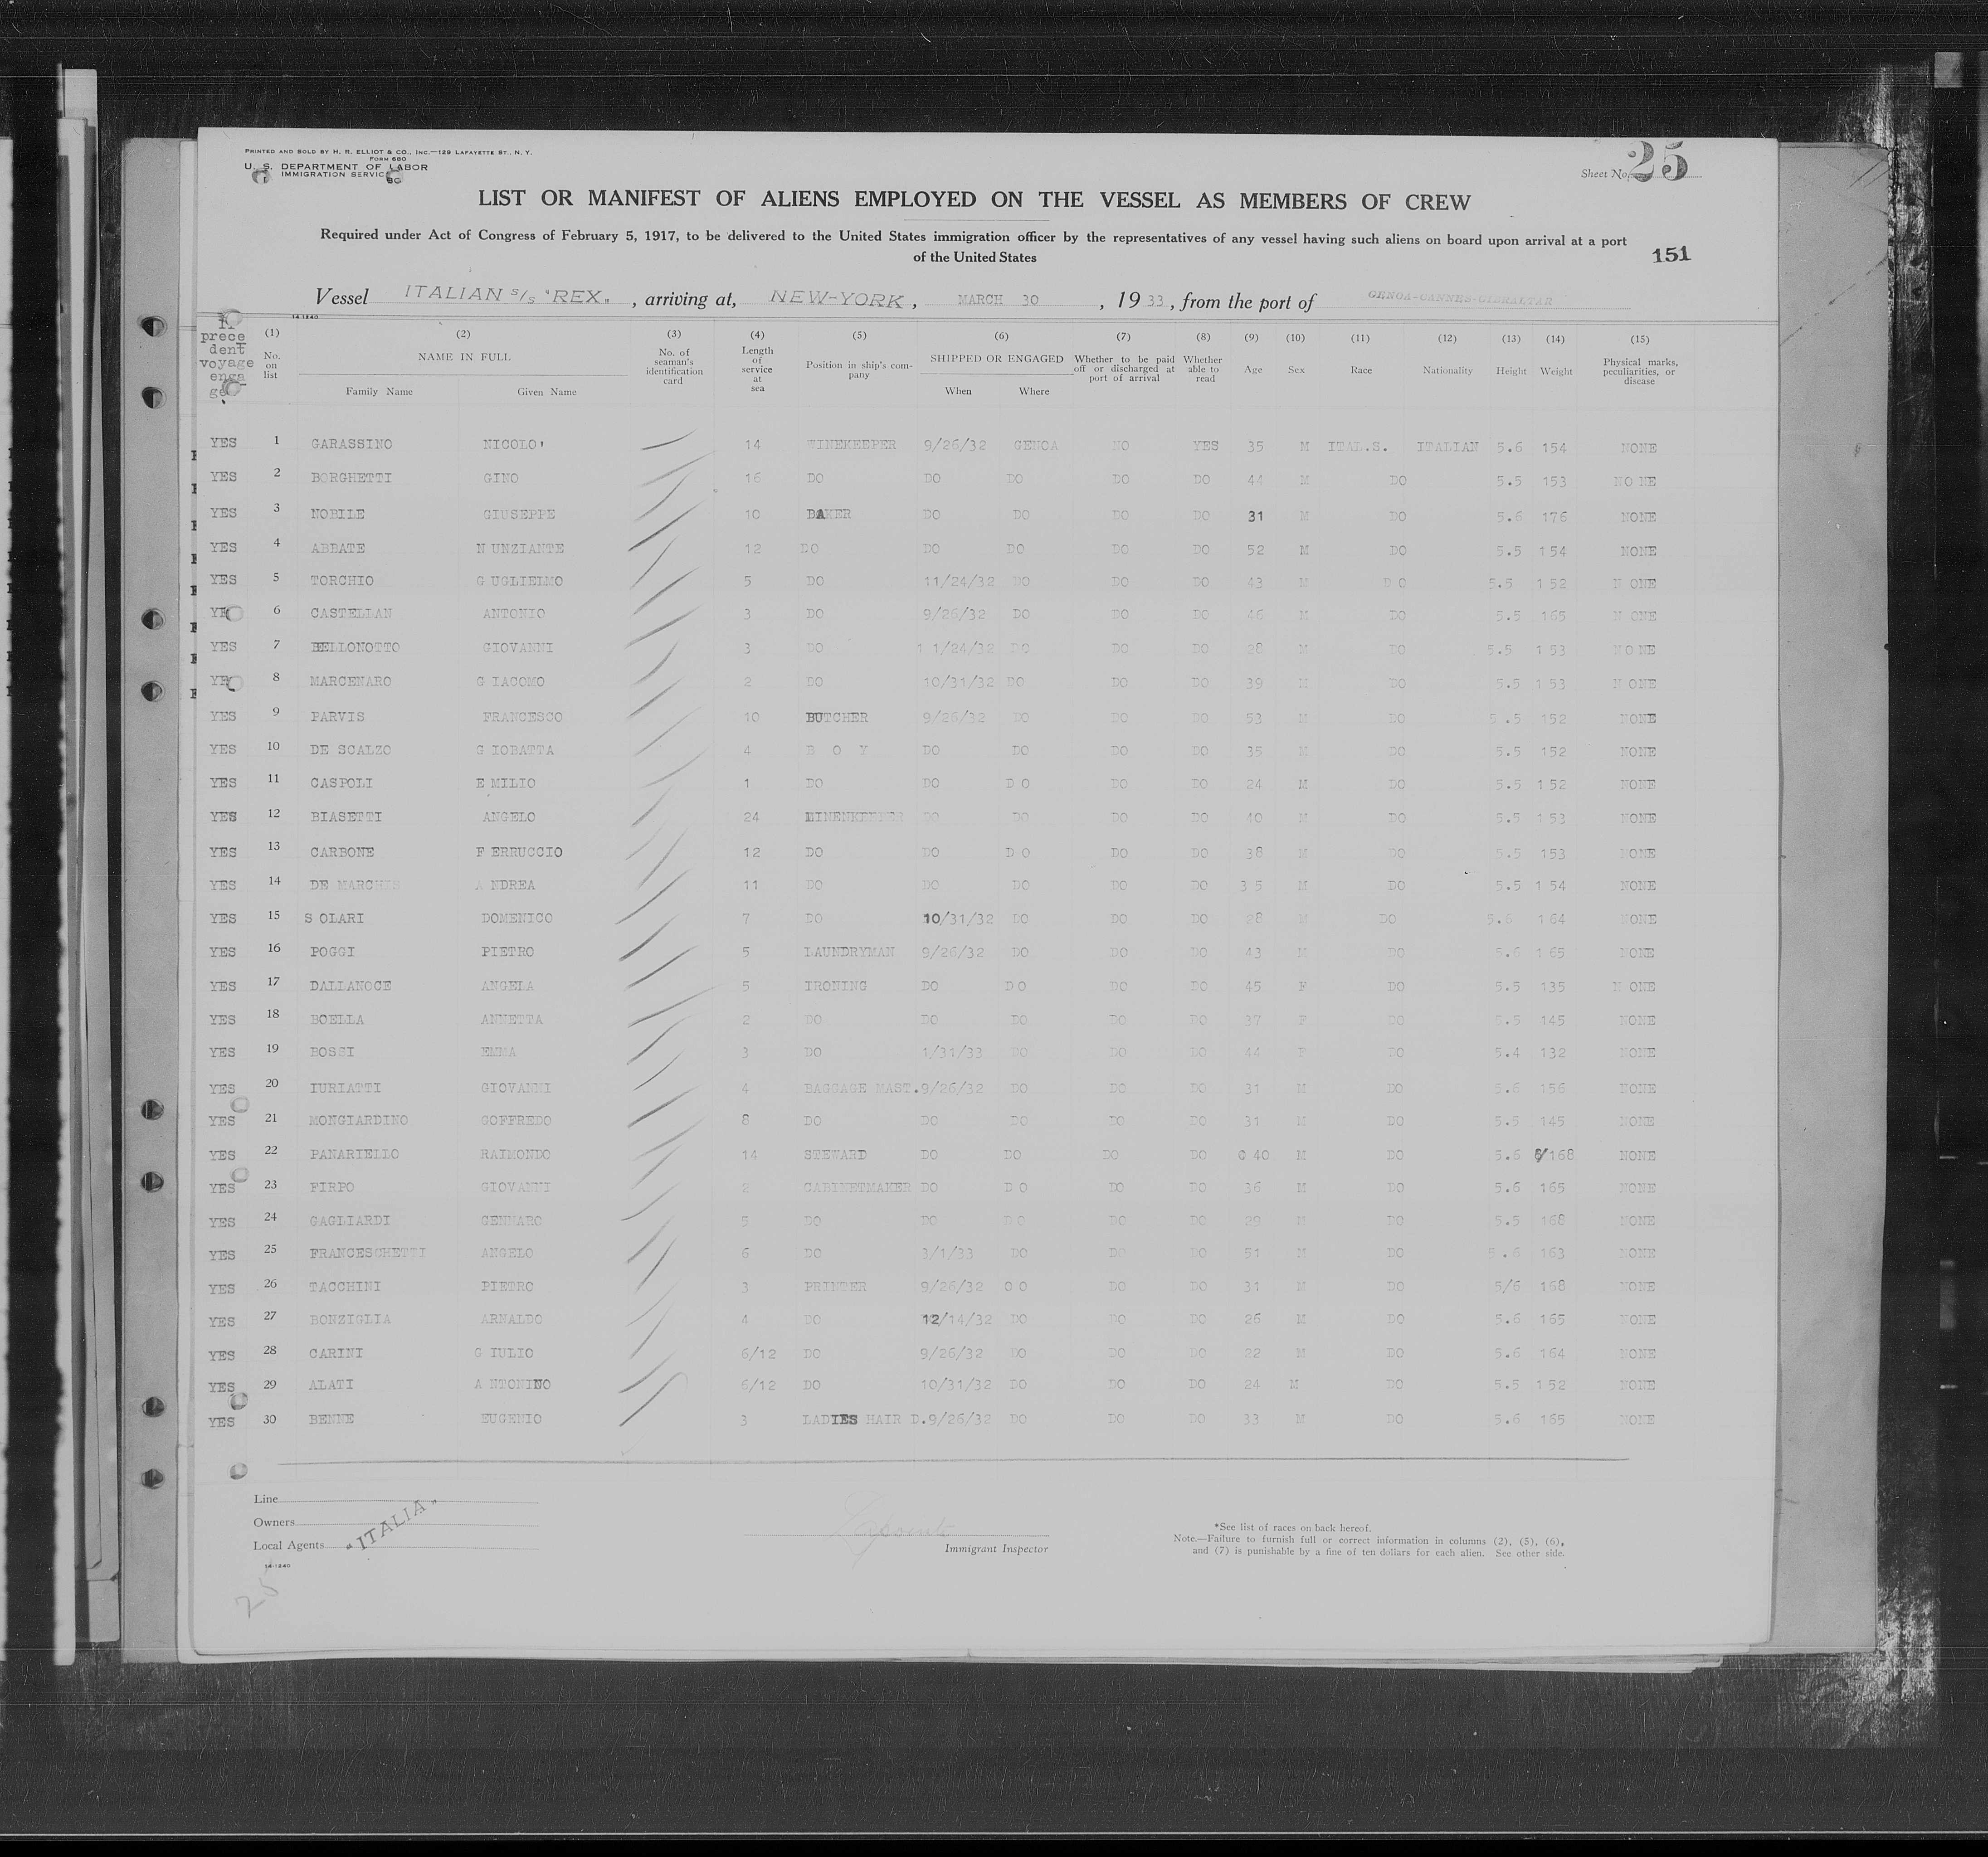 PRINTED AND SOLD BY H. R. ELLIOT & CO., INC.—129 LAFAYETTE ST., N. Y.
FORM 680
U. S. DEPARTMENT OF LABOR
IMMIGRATION SERVICE
Sheet No. 25
LIST OR MANIFEST OF ALIENS EMPLOYED ON THE VESSEL AS MEMBERS OF CREW
Required under Act of Congress of February 5, 1917, to be delivered to the United States immigration officer by the representatives of any vessel having such aliens on board upon arrival at a port
of the United States
151
Vessel ITALIAN S/S "REX", arriving at, NEW-YORK, MARCH 30, 1933, from the port of GENOA-CANNES-GIBRALTAR
14-1240
prece dent voyage enga ge (1) No. on list (2) NAME IN FULL Family Name Given Name (3) No. of seaman's identification card (4) Length of service at sea (5) Position in ship's company (6) SHIPPED OR ENGAGED When Where (7) Whether to be paid off or discharged at port of arrival (8) Whether able to read (9) Age (10) Sex (11) Race (12) Nationality (13) Height (14) Weight (15) Physical marks, peculiarities, or disease
YES 1 GARASSINO NICOLO' 14 WINEKEEPER 9/26/32 GENOA NO YES 35 M ITAL.S. ITALIAN 5.6 154 NONE
YES 2 BORGHETTI GINO 16 DO DO DO DO DO 44 M DO 5.5 153 NO NE
YES 3 NOBILE GIUSEPPE 10 BAKER DO DO DO DO 31 M DO 5.6 176 NONE
YES 4 ABBATE N UNZIANTE 12 DO DO DO DO DO 52 M DO 5.5 154 NONE
YES 5 TORCHIO G UGLIELMO 5 DO 11/24/32 DO DO DO 43 M D O 5.5 152 N ONE
YE 6 CASTELLAN ANTONIO 3 DO 9/26/32 DO DO DO 46 M DO 5.5 165 N ONE
YES 7 BELLONOTTO GIOVANNI 3 DO 1 1/24/32 DO DO DO 28 M DO 5.5 1 53 NO NE
YE 8 MARCENARO G IACOMO 2 DO 10/31/32 DO DO DO 39 M DO 5.5 1 53 N ONE
YES 9 PARVIS FRANCESCO 10 BUTCHER 9/26/32 DO DO DO 53 M DO 5 .5 152 NONE
YES 10 DE SCALZO G IOBATTA 4 B O Y DO DO DO DO 35 M DO 5.5 152 NONE
YES 11 CASPOLI E MILIO 1 DO DO D O DO DO 24 M DO 5.5 1 52 NONE
YES 12 BIASETTI ANGELO 24 LINENKEEPER DO DO DO DO 40 M DO 5.5 1 53 NONE
YES 13 CARBONE F ERRUCCIO 12 DO DO D O DO DO 38 M DO 5.5 153 NONE
YES 14 DE MARCHIS A NDREA 11 DO DO DO DO DO 3 5 M DO 5.5 1 54 NONE
YES 15 S OLARI DOMENICO 7 DO 10/31/32 DO DO DO 28 M DO 5.6 164 NONE
YES 16 POGGI PIETRO 5 LAUNDRYMAN 9/26/32 DO DO DO 43 M DO 5.6 1 65 NONE
YES 17 DALLANOCE ANGELA 5 IRONING DO D O DO DO 45 F DO 5.5 135 N ONE
YES 18 BOELLA ANNETTA 2 DO DO DO DO DO 37 F DO 5.5 145 NONE
YES 19 BOSSI EMMA 3 DO 1/31/33 DO DO DO 44 F DO 5.4 132 NONE
YES 20 IURIATTI GIOVANNI 4 BAGGAGE MAST. 9/26/32 DO DO DO 31 M DO 5.6 156 NONE
YES 21 MONGIARDINO GOFFREDO 8 DO DO DO DO DO 31 M DO 5.5 145 NONE
YES 22 PANARIELLO RAIMONDO 14 STEWARD DO DO DO DO 0 40 M DO 5.6 168 NONE
YES 23 FIRPO GIOVANNI 2 CABINETMAKER DO D O DO DO 36 M DO 5.6 165 NONE
YES 24 GAGLIARDI GENNARO 5 DO DO D O DO DO 29 M DO 5.5 168 NONE
YES 25 FRANCESCHETTI ANGELO 6 DO 3/1/33 DO DO DO 51 M DO 5 .6 163 NONE
YES 26 TACCHINI PIETRO 3 PRINTER 9/26/32 O O DO DO 31 M DO 5/6 168 NONE
YES 27 BONZIGLIA ARNALDO 4 DO 12/14/32 DO DO DO 26 M DO 5.6 165 NONE
YES 28 CARINI G IULIO 6/12 DO 9/26/32 DO DO DO 22 M DO 5.6 164 NONE
YES 29 ALATI A NTONINO 6/12 DO 10/31/32 DO DO DO 24 M DO 5.5 152 NONE
YES 30 BENNE EUGENIO 3 LADIES HAIR D. 9/26/32 DO DO DO 33 M DO 5.6 165 NONE
Line
Owners
Local Agents "ITALIA"
14-1240
Immigrant Inspector
*See list of races on back hereof.
Note.—Failure to furnish full or correct information in columns (2), (5), (6),
and (7) is punishable by a fine of ten dollars for each alien. See other side.
25